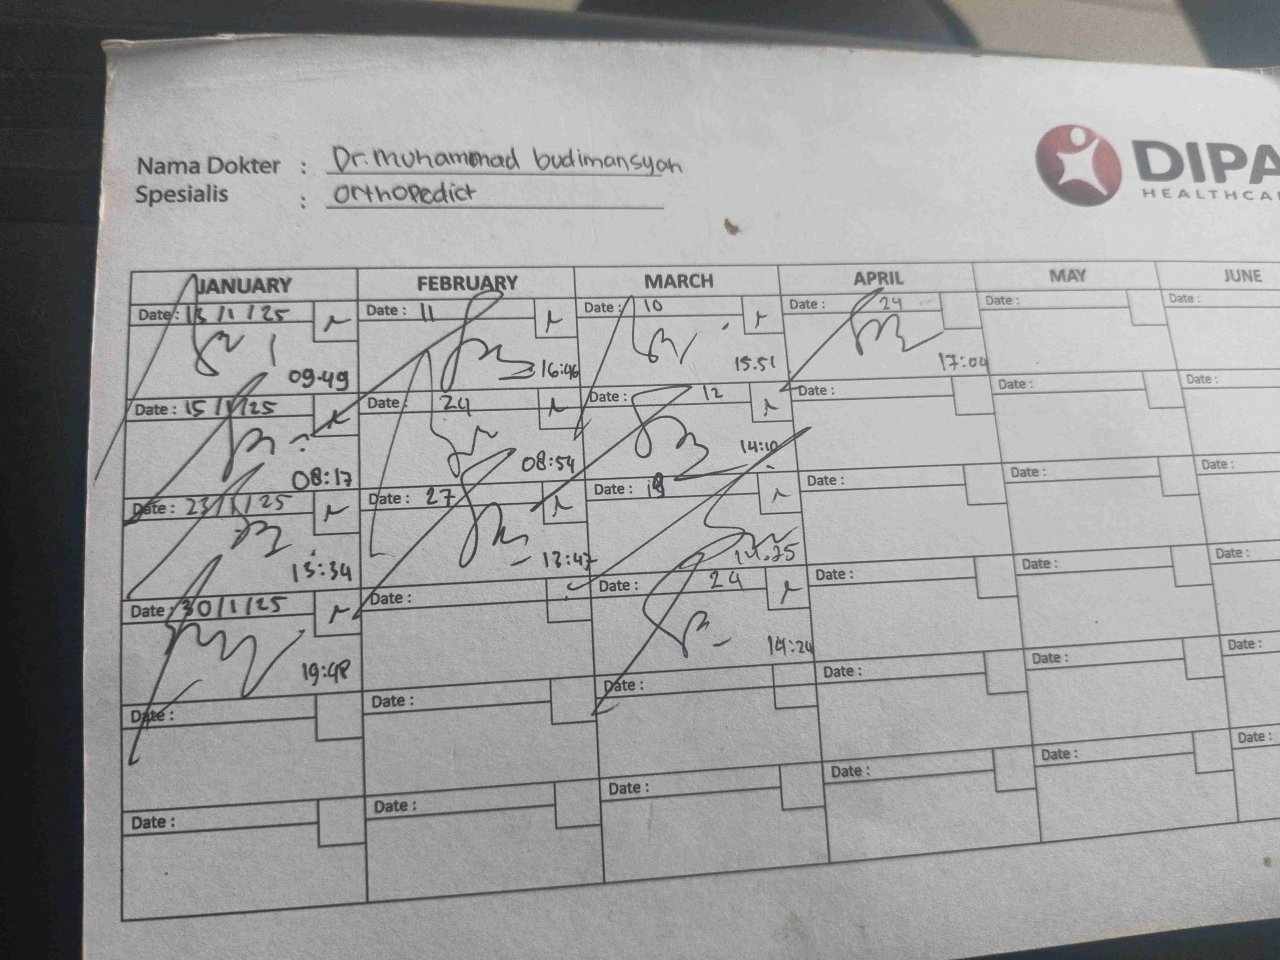 Nama Dokter : Dr. muhammad budimansyah
Spesialis : orthopedict
DIPA
HEALTHCA
JANUARY FEBRUARY MARCH APRIL MAY JUNE
Date : 13/1/25 Date : 11 Date : 10 Date : 24 Date : Date :
09.49 16:46 15.51 17:04
Date : 15/1/25 Date : 24 Date : 12 Date : Date : Date :
08:17 08:54 14:10
Date : 23/1/25 Date : 27 Date : 18 Date : Date : Date :
13:34 13:47
Date : 30/1/25 Date : Date : 24 Date : Date : Date :
19:48 14:24
Date : Date : Date : Date : Date : Date :
Date : Date : Date : Date : Date : Date :